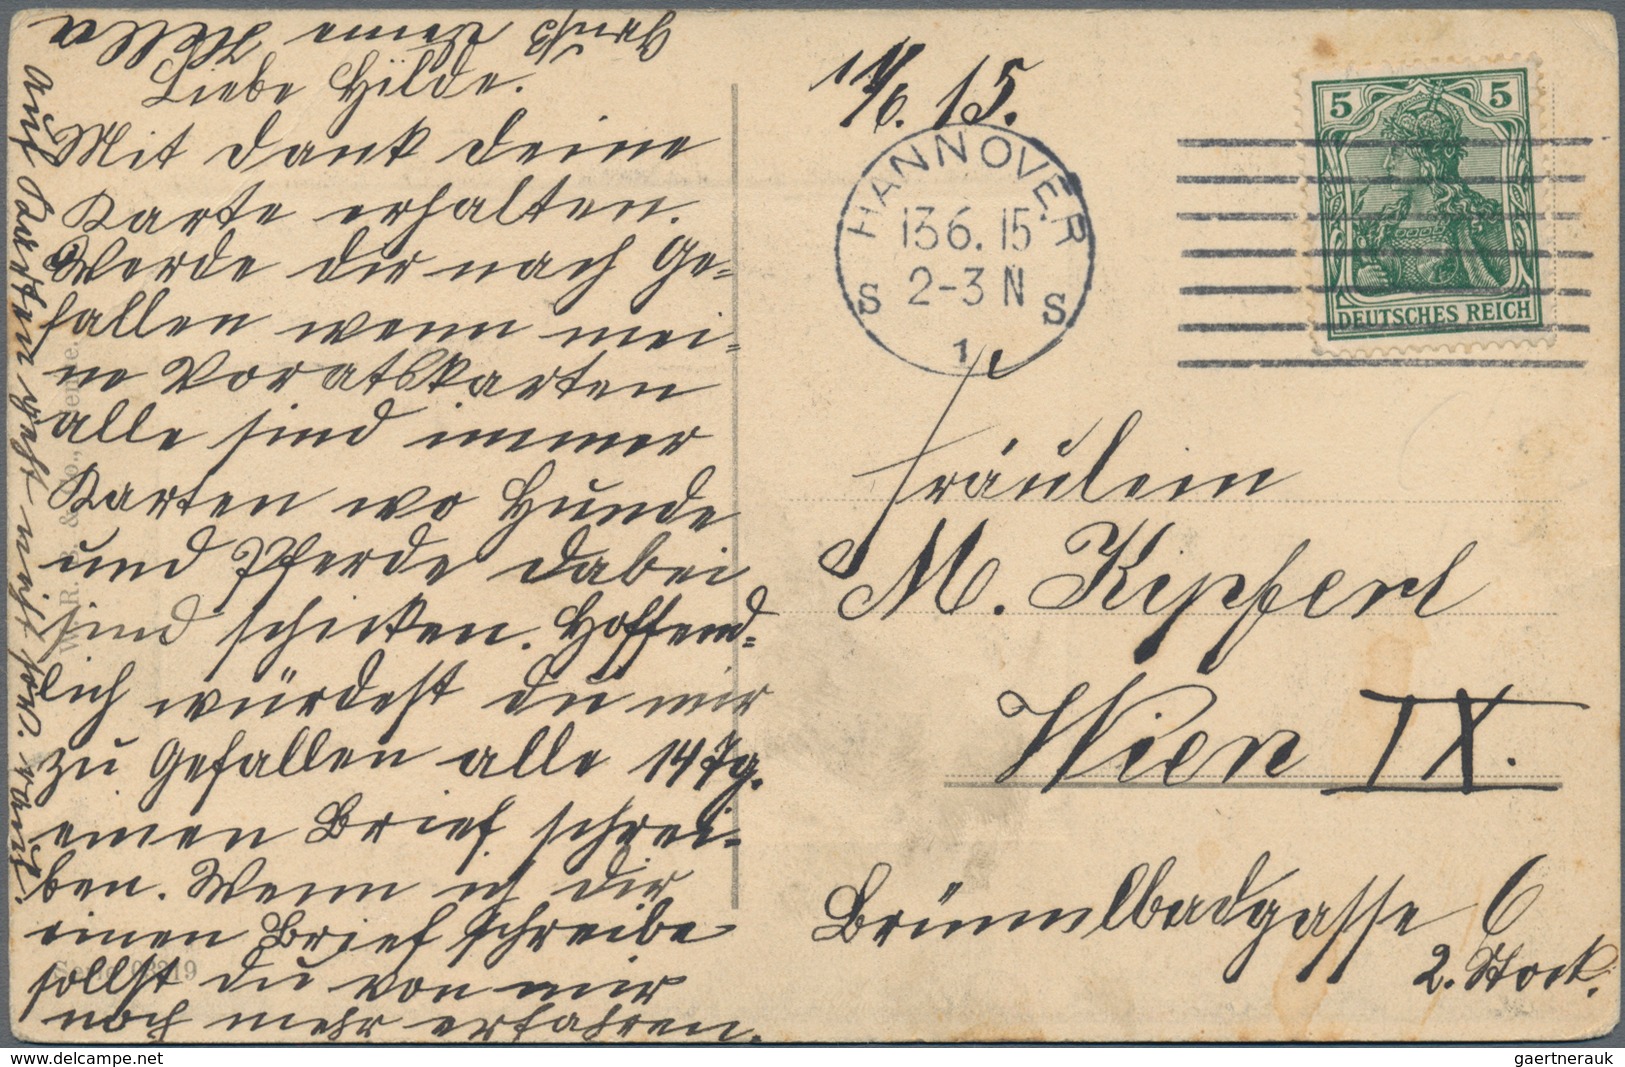 Liebe Hilde.
Mit Dank deine
Karte erhalten.
Werde dir nach Ge=
fallen wenn mei=
ne Voratskarten
alle sind immer
Karten wo Hunde
und Pferde dabei
sind schicken. Hoffend=
lich würdest du mir
zu Gefallen alle 14 Tg.
einen Brief schrei=
ben. Wenn ich dir
einen Brief schreibe
sollst du von mir
noch mehr erfahren.
auf Karten geht nicht
Gruß deine
14/6. 15.
HANNOVER
13 6. 15
2-3 N
S S
1
5 5
DEUTSCHES REICH
Fräulein
M. Kipferl
Wien IX.
Brünnlbadgasse 6
2. Stock.
gaertnerauk